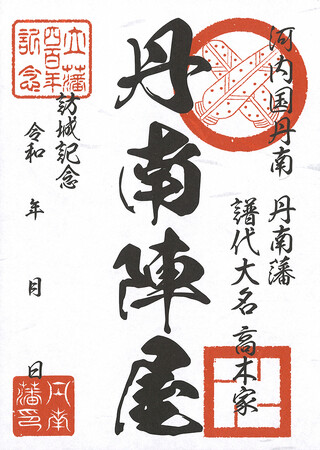 河内国丹南　丹南藩
譜代大名 高木家
丹南陣屋
立藩
四百年
記念
訪城記念
令和　年　月　日
丹南
藩印